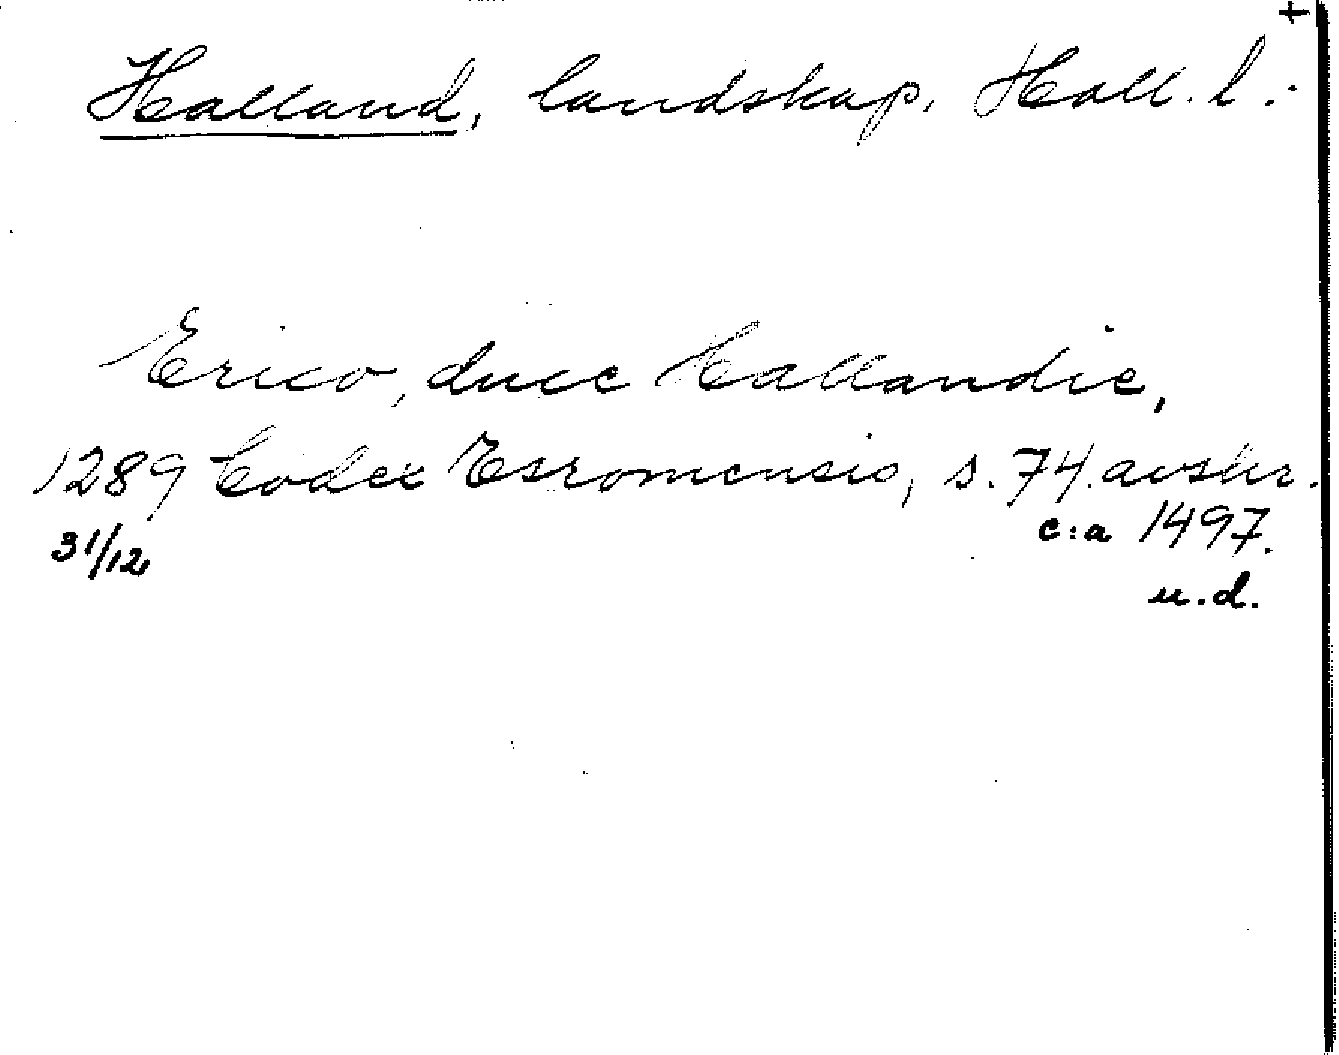 +
Halland, landskap. Hall. l.
Erico, duce Hallandie,
1289 Codex Esromensis, s. 74. avskr.
31/12 c:a 1497.
u.d.